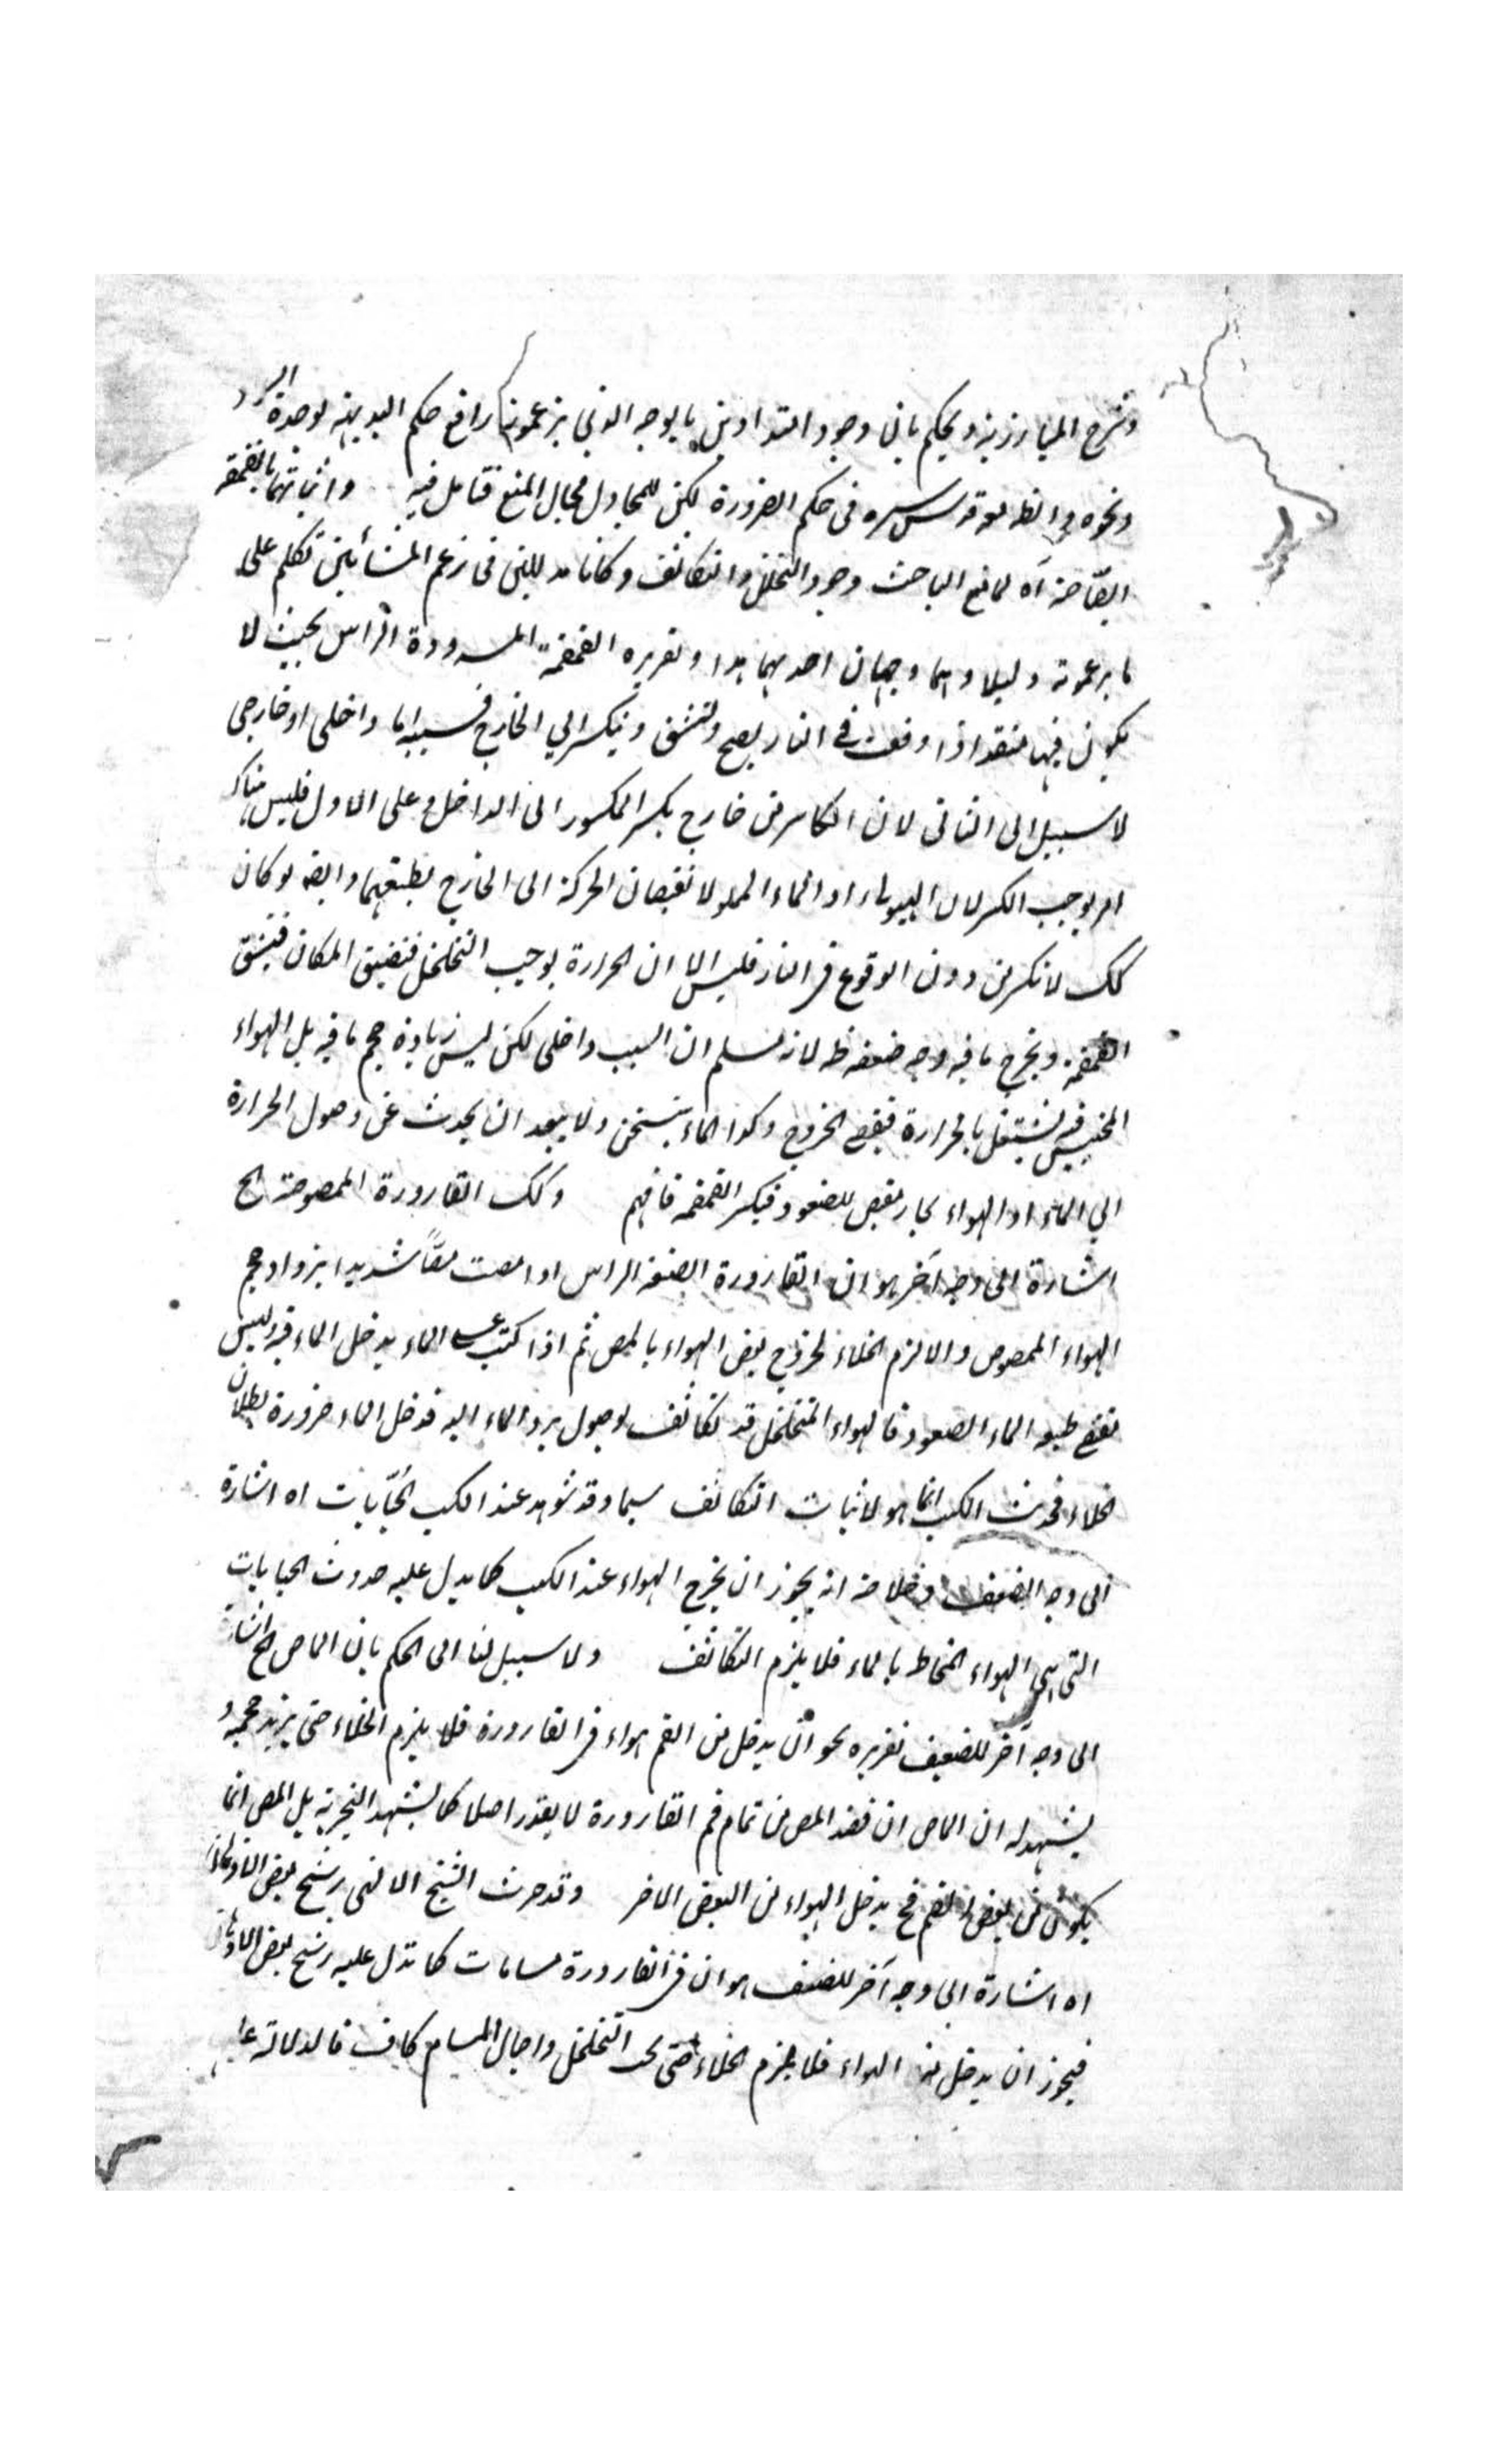 وشرح المبارزية ويحكم بان وجود التداوين بالوجه الذي يزعمون رافع حكم البديهية لوحدة
ونحوه الظ قدس سره في حكم الضرورة لكن للمجادل مجال المنع فتامل فيه واثباتهما بالقمقمة
الصّاحة آه لما منع الباحث وجود التخلخل والتكاثف وكانا مدللين في زعم المشائين تكلم على
ما يزعمونه دليلا وهما وجهان احدهما هذا وتقريره القمقمة المسدودة الراس بحيث لا
يكون فيها منفذ اذا وقعت في النار يصح وتنشق وينكسر الي الخارج فسببه اما داخلى او خارجى
لا سبيل الى الثانى لان الكاسر من خارج يكسر المكسور الى الداخل وعلى الاول فليس هناك
امر يوجب الكسر لان الهواء او الماء المملو لا يقتضيان الحركة الى الخارج بطبعهما وايضه لو كان
كك لانكسر من دون الوقوع في النار فليس الا ان الحرارة يوجب التخلخل فتضيق المكان فينشق
القمقمة ويخرج ما فيه وجه ضعفه ظ لانه نسلم ان السبب داخلى لكن ليس زيادة حجم ما فيه بل الهواء
المحتبس فيه يشتعل بالحرارة فيقتضى الخروج وكذا الماء يتسخن ولا يبعد ان يحدث عن وصول الحرارة
الي الماء او الهواء بخار مقتض للصعود فيكسر القمقمة فافهم وكك القارورة الممصوصة الخ
اشارة الى وجه آخر هو ان القارورة الضيقة الراس اذا مصت مصًّا شديدا يزداد حجم
الهواء الممصوص والا لزم الخلاء لخروج بعض الهواء بالمص ثم اذا كبت على الماء يدخل الماء فيه وليس
تقتضى طبيعة الماء الصعود فالهواء المتخلخل قد تكاثف لوصول برد الماء اليه فدخل الماء ضرورة بطلان
الخلاء فحديث الكب انما هو لاثبات التكاثف سيما وقد شوهد عند الكب الحبّابات اه اشارة
الى وجه الضعف وخلاصته انه يجوز ان يخرج الهواء عند الكب كما يدل عليه حدوث الحبابات
التى هي الهواء المخاط بالماء فلا يلزم التكاثف ولا سبيل لنا الى الحكم بان الماص الخ اشارة
الى وجه آخر للضعيف تقريره نحو ان يدخل من الفم هواء في القارورة فلا يلزم الخلاء حتى يزيد حجمه و
يشهد له ان الماص ان قصد المص من تمام فم القارورة لا يقدر اصلا كما يشهد التجربة بل المص انما
يكون من بعض الفم فح يدخل الهواء من البعض الاخر وقد حرث الشيخ الا لنهى رشح بعض
اه اشارة الى وجه آخر للضعف هو ان في القارورة مسامات كما تدل عليه رشح بعض
فيجوز ان يدخل منه الهواء فلا يلزم الخلاء حتى يجب التخلخل واجمال المسام كاف فالدلالة على